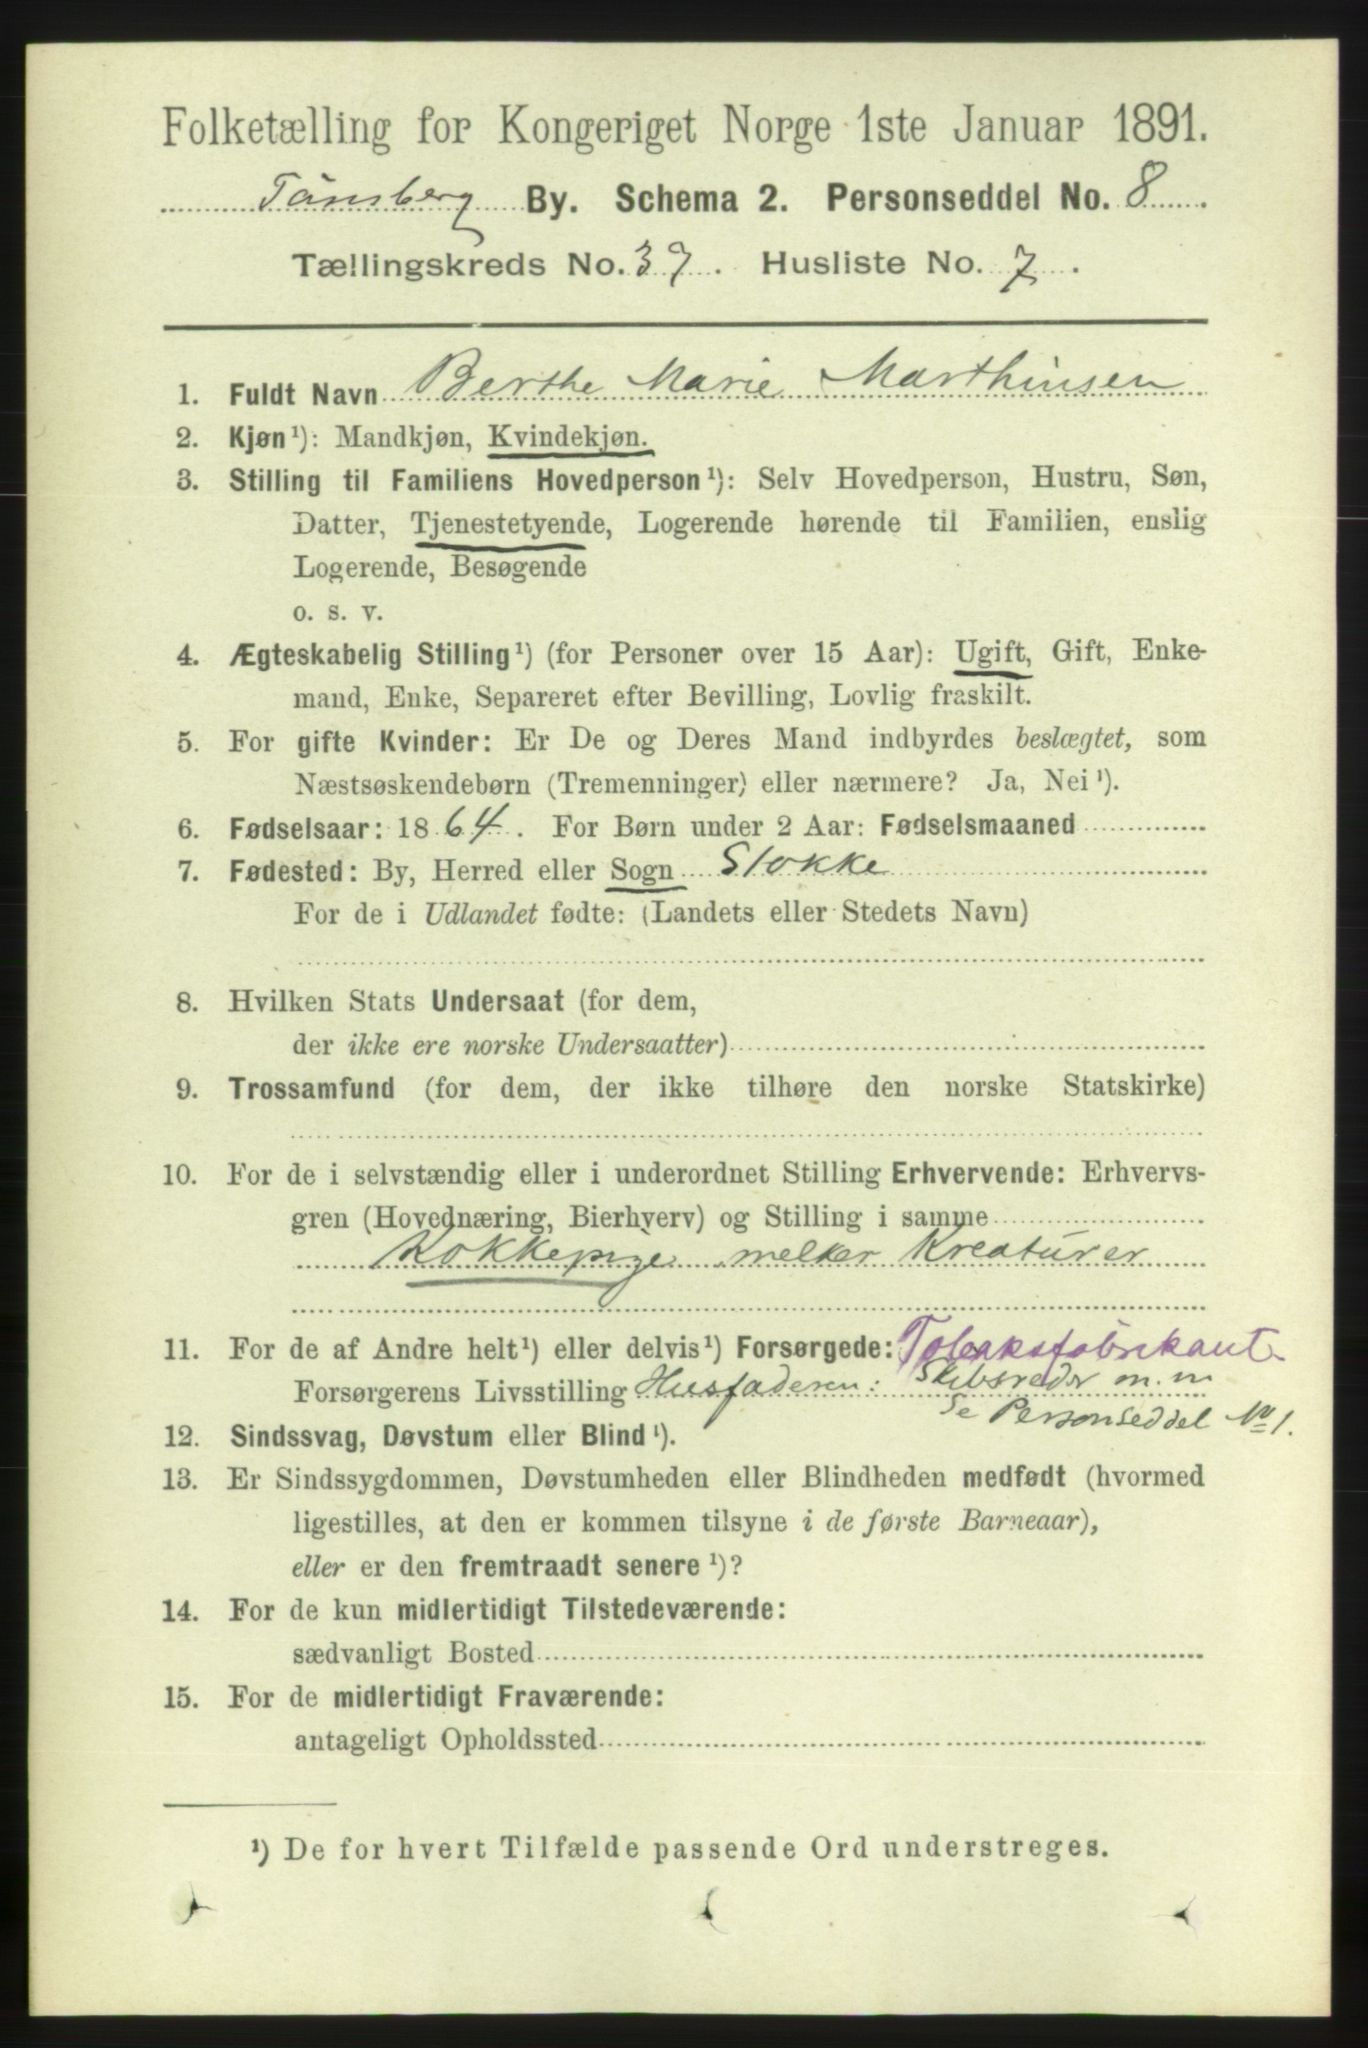 Folketælling for Kongeriget Norge 1ste Januar 1891.
Tønsberg By. Schema 2. Personseddel No. 8.
Tællingskreds No. 37. Husliste No. 7.
1. Fuldt Navn Berthe Marie Marthinsen
2. Kjøn¹): Mandkjøn, Kvindekjøn.
3. Stilling til Familiens Hovedperson¹): Selv Hovedperson, Hustru, Søn,
Datter, Tjenestetyende, Logerende hørende til Familien, enslig
Logerende, Besøgende
o. s. v.
4. Ægteskabelig Stilling¹) (for Personer over 15 Aar): Ugift, Gift, Enke-
mand, Enke, Separeret efter Bevilling, Lovlig fraskilt.
5. For gifte Kvinder: Er De og Deres Mand indbyrdes beslægtet, som
Næstsøskendebørn (Tremenninger) eller nærmere? Ja, Nei¹).
6. Fødselsaar: 1864. For Børn under 2 Aar: Fødselsmaaned
7. Fødested: By, Herred eller Sogn Stokke
For de i Udlandet fødte: (Landets eller Stedets Navn)
8. Hvilken Stats Undersaat (for dem,
der ikke ere norske Undersaatter)
9. Trossamfund (for dem, der ikke tilhøre den norske Statskirke)
10. For de i selvstændig eller i underordnet Stilling Erhvervende: Erhvervs-
gren (Hovednæring, Bierhverv) og Stilling i samme
Kokkepige melker Kreaturer
11. For de af Andre helt¹) eller delvis¹) Forsørgede: Tobaksfabrikant
Forsørgerens Livsstilling Husfaderen: Skibsreder m. m
Se Personseddel No 1.
12. Sindssvag, Døvstum eller Blind¹).
13. Er Sindssygdommen, Døvstumheden eller Blindheden medfødt (hvormed
ligestilles, at den er kommen tilsyne i de første Barneaar),
eller er den fremtraadt senere¹)?
14. For de kun midlertidigt Tilstedeværende:
sædvanligt Bosted
15. For de midlertidigt Fraværende:
antageligt Opholdssted
¹) De for hvert Tilfælde passende Ord understreges.